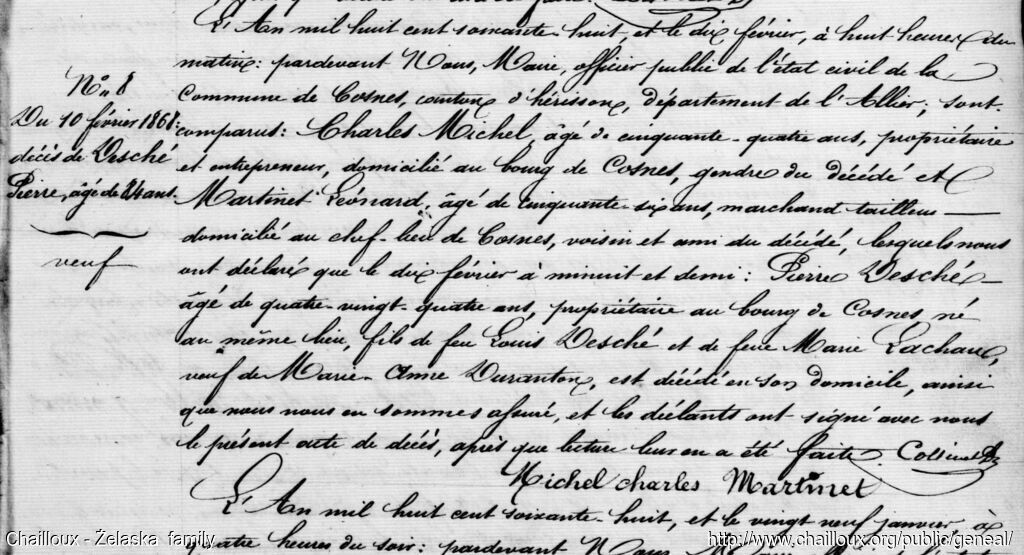 L'An mil huit cent soixante-huit, et le dix février, à huit heures du
matin: pardevant Nous, Maire, officier public de l'état civil de la
Commune de Cosnes, canton d'hérisson, département de l'Allier; sont
comparus: Charles Michel, âgé de cinquante-quatre ans, propriétaire
et entrepreneur, domicilié au bourg de Cosnes, gendre du décédé et
Martinet Léonard, âgé de cinquante-six ans, marchand tailleur
domicilié au chef-lieu de Cosnes, voisin et ami du décédé, lesquels nous
ont déclaré que le dix février à minuit et demi: Pierre Desché
âgé de quatre-vingt-quatre ans, propriétaire au bourg de Cosnes né
au même lieu, fils de feu Louis Desché et de feue Marie Lachaux,
veuf de Marie-Anne Duranton, est décédé en son domicile, ainsi
que nous nous en sommes assuré, et les déclants ont signé avec nous
le présent acte de décès, après que lecture leur en a été faite.
Michel charles Martinet
N° 8
Du 10 février 1868:
décès de Desché
Pierre, âgé de 84 ans.
veuf
L'An mil huit cent soixante-huit, et le vingt neuf janvier, à
quatre heures du soir: pardevant Nous
Chailloux - Żelaska family
http://www.chailloux.org/public/geneal/